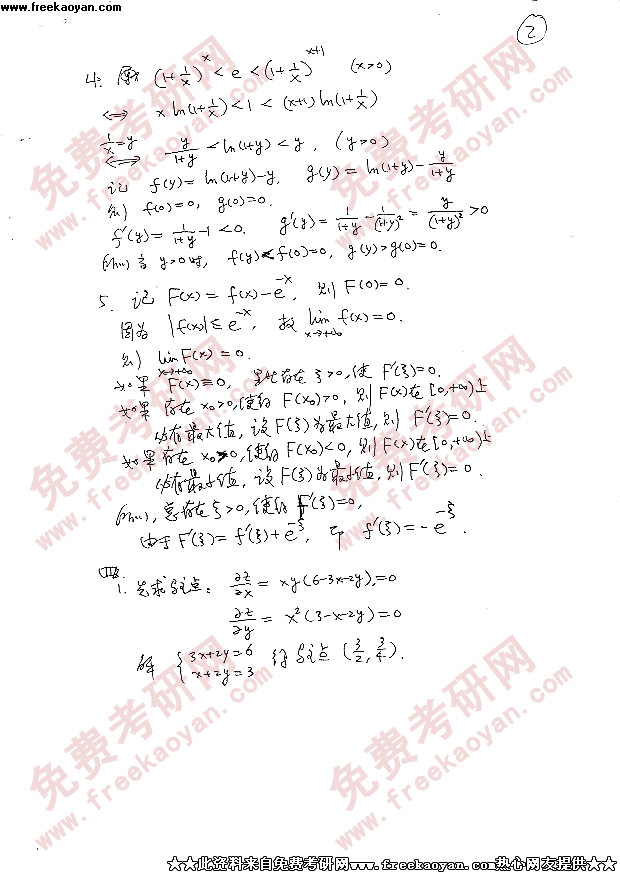 www.freekaoyan.com
2
4. 原式 (1+1/x)^x < e < (1+1/x)^{x+1} (x>0)
⟺ x ln(1+1/x) < 1 < (x+1) ln(1+1/x)
1/x=y ⟺ y/(1+y) < ln(1+y) < y, (y>0)
记 f(y) = ln(1+y)-y, g(y) = ln(1+y) - y/(1+y)
则 f(0)=0, g(0)=0.
f'(y) = 1/(1+y) - 1 < 0. g'(y) = 1/(1+y) - 1/(1+y)^2 = y/(1+y)^2 > 0
所以 当 y>0时, f(y) < f(0)=0, g(y) > g(0)=0.
5. 记 F(x) = f(x) - e^{-x}, 则 F(0)=0.
因为 |f(x)| ≤ e^{-x}, 故 lim_{x→+∞} f(x) = 0.
则 lim_{x→+∞} F(x) = 0.
如果 F(x) ≡ 0, 存在 ξ>0, 使 F'(ξ)=0.
如果 存在 x₀>0, 使得 F(x₀)>0, 则 F(x)在[0,+∞)上
必有最大值, 设 F(ξ)为最大值, 则 F'(ξ)=0.
如果存在 x₀>0, 使得 F(x₀)<0, 则 F(x)在[0,+∞)上
必有最小值, 设 F(ξ)为最小值, 则 F'(ξ)=0.
所以, 总存在 ξ>0, 使得 F'(ξ)=0,
由于 F'(ξ) = f'(ξ) + e^{-ξ}, 即 f'(ξ) = -e^{-ξ}.
四
1. 先求驻点: ∂z/∂x = xy(6-3x-2y) = 0
∂z/∂y = x²(3-x-2y) = 0
解 { 3x+2y=6
x+2y=3 得驻点 (3/2, 3/4).
免费考研网
www.freekaoyan.com
★★此资料来自免费考研网www.freekaoyan.com热心网友提供★★